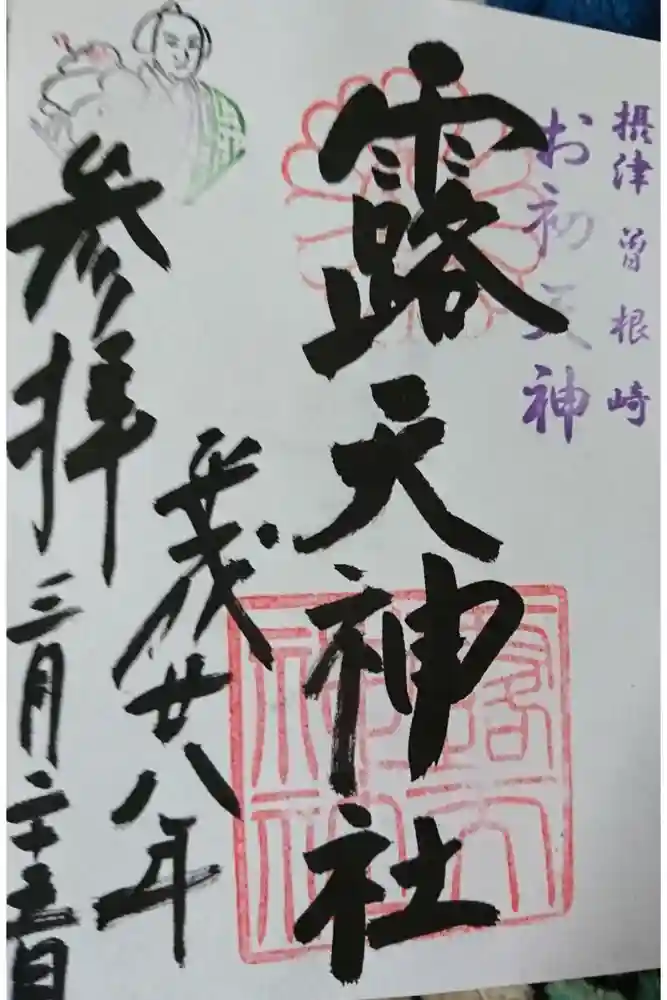 摂津 曽根崎
お初天神
露天神社
平成廿八年
参拝
三月二十五日
露天神社